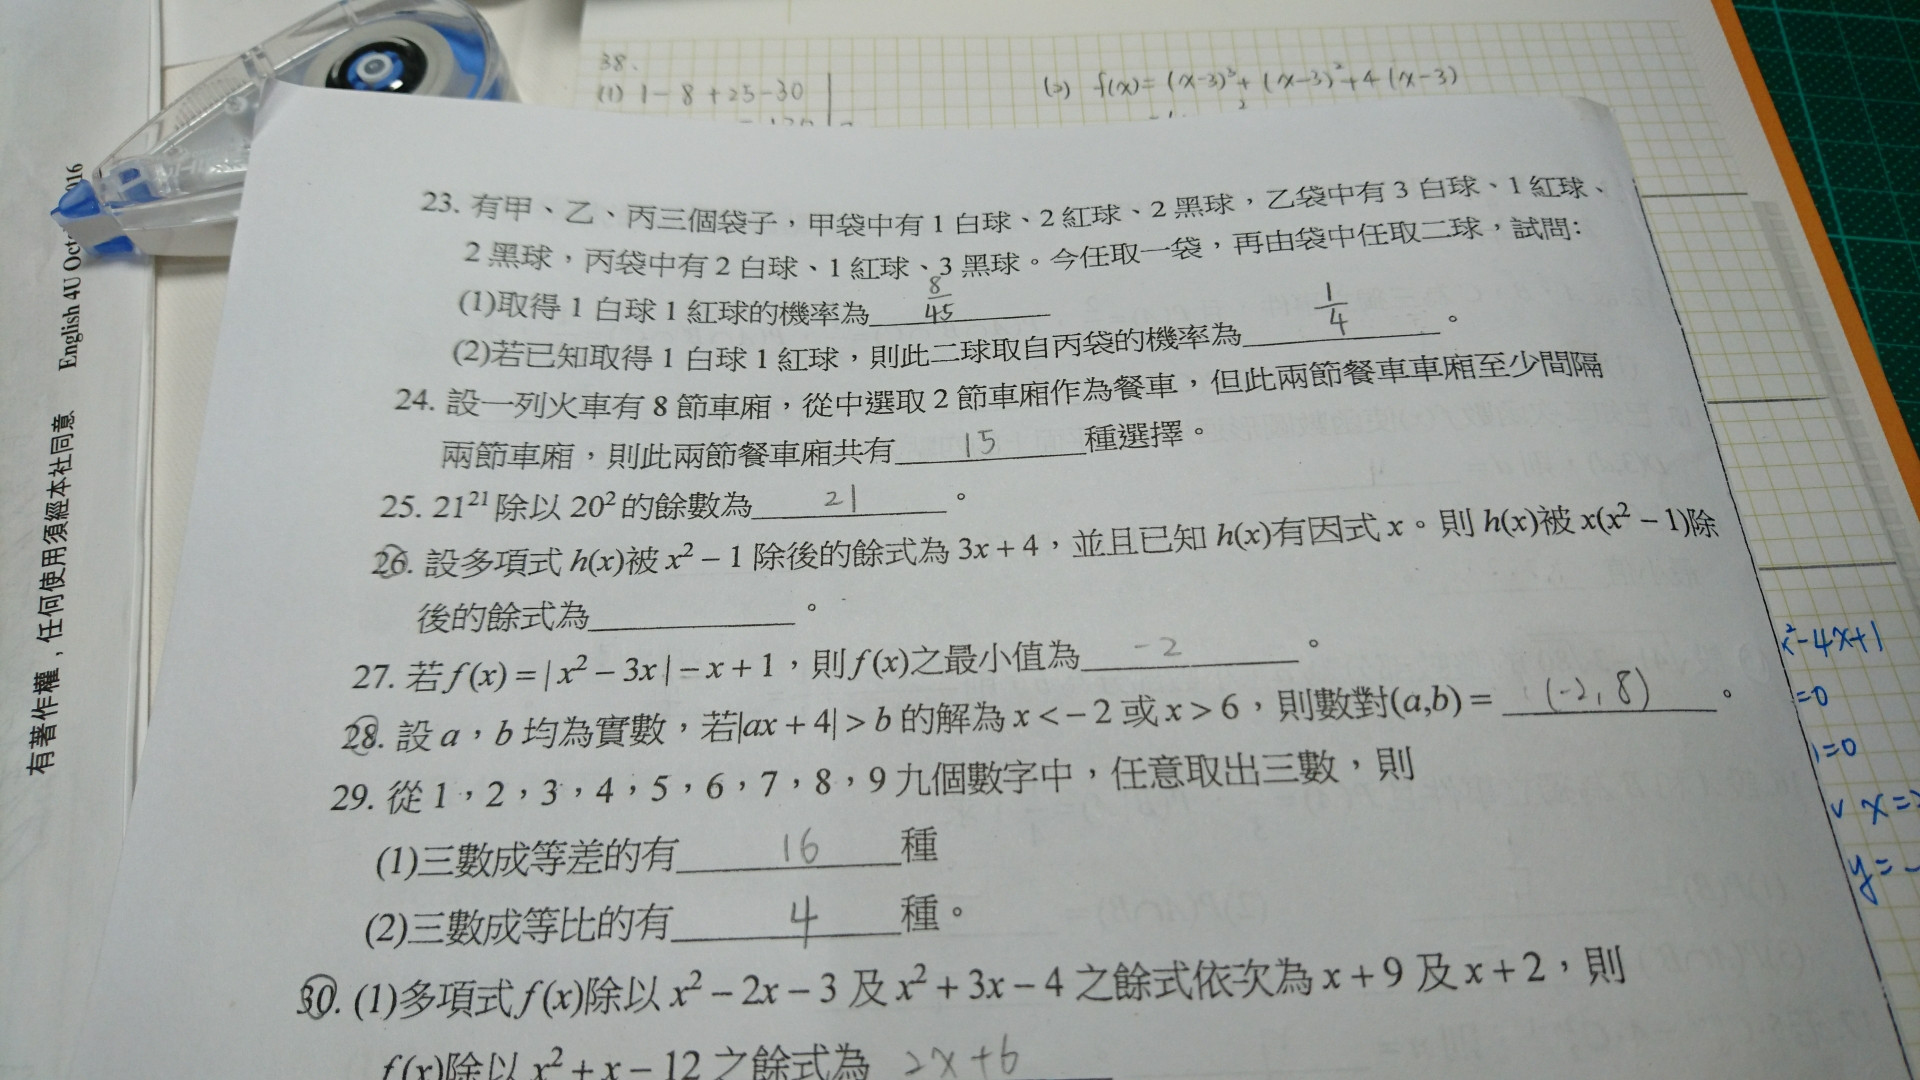 38.
(1) 1-8+25-30
(2) f(x)=(x-3)³+(x-3)²+4(x-3)
23. 有甲、乙、丙三個袋子，甲袋中有 1 白球、2 紅球、2 黑球，乙袋中有 3 白球、1 紅球、
2 黑球，丙袋中有 2 白球、1 紅球、3 黑球。今任取一袋，再由袋中任取二球，試問：
(1)取得 1 白球 1 紅球的機率為 8/45
(2)若已知取得 1 白球 1 紅球，則此二球取自丙袋的機率為 1/4 。
24. 設一列火車有 8 節車廂，從中選取 2 節車廂作為餐車，但此兩節餐車車廂至少間隔
兩節車廂，則此兩節餐車廂共有 15 種選擇。
25. 21²¹ 除以 20² 的餘數為 21 。
26. 設多項式 h(x)被 x² − 1 除後的餘式為 3x + 4，並且已知 h(x)有因式 x。則 h(x)被 x(x² − 1)除
後的餘式為 。
27. 若 f(x) = | x² − 3x | − x + 1，則 f(x)之最小值為 -2 。
28. 設 a，b 均為實數，若|ax + 4| > b 的解為 x < − 2 或 x > 6，則數對(a,b) = (-2, 8) 。
29. 從 1，2，3，4，5，6，7，8，9 九個數字中，任意取出三數，則
(1)三數成等差的有 16 種
(2)三數成等比的有 4 種。
30. (1)多項式 f(x)除以 x² − 2x − 3 及 x² + 3x − 4 之餘式依次為 x + 9 及 x + 2，則
f(x)除以 x² + x − 12 之餘式為 2x+6
有著作權，任何使用須經本社同意 English 4U
x²-4x+1
=0
=0
x=
y=